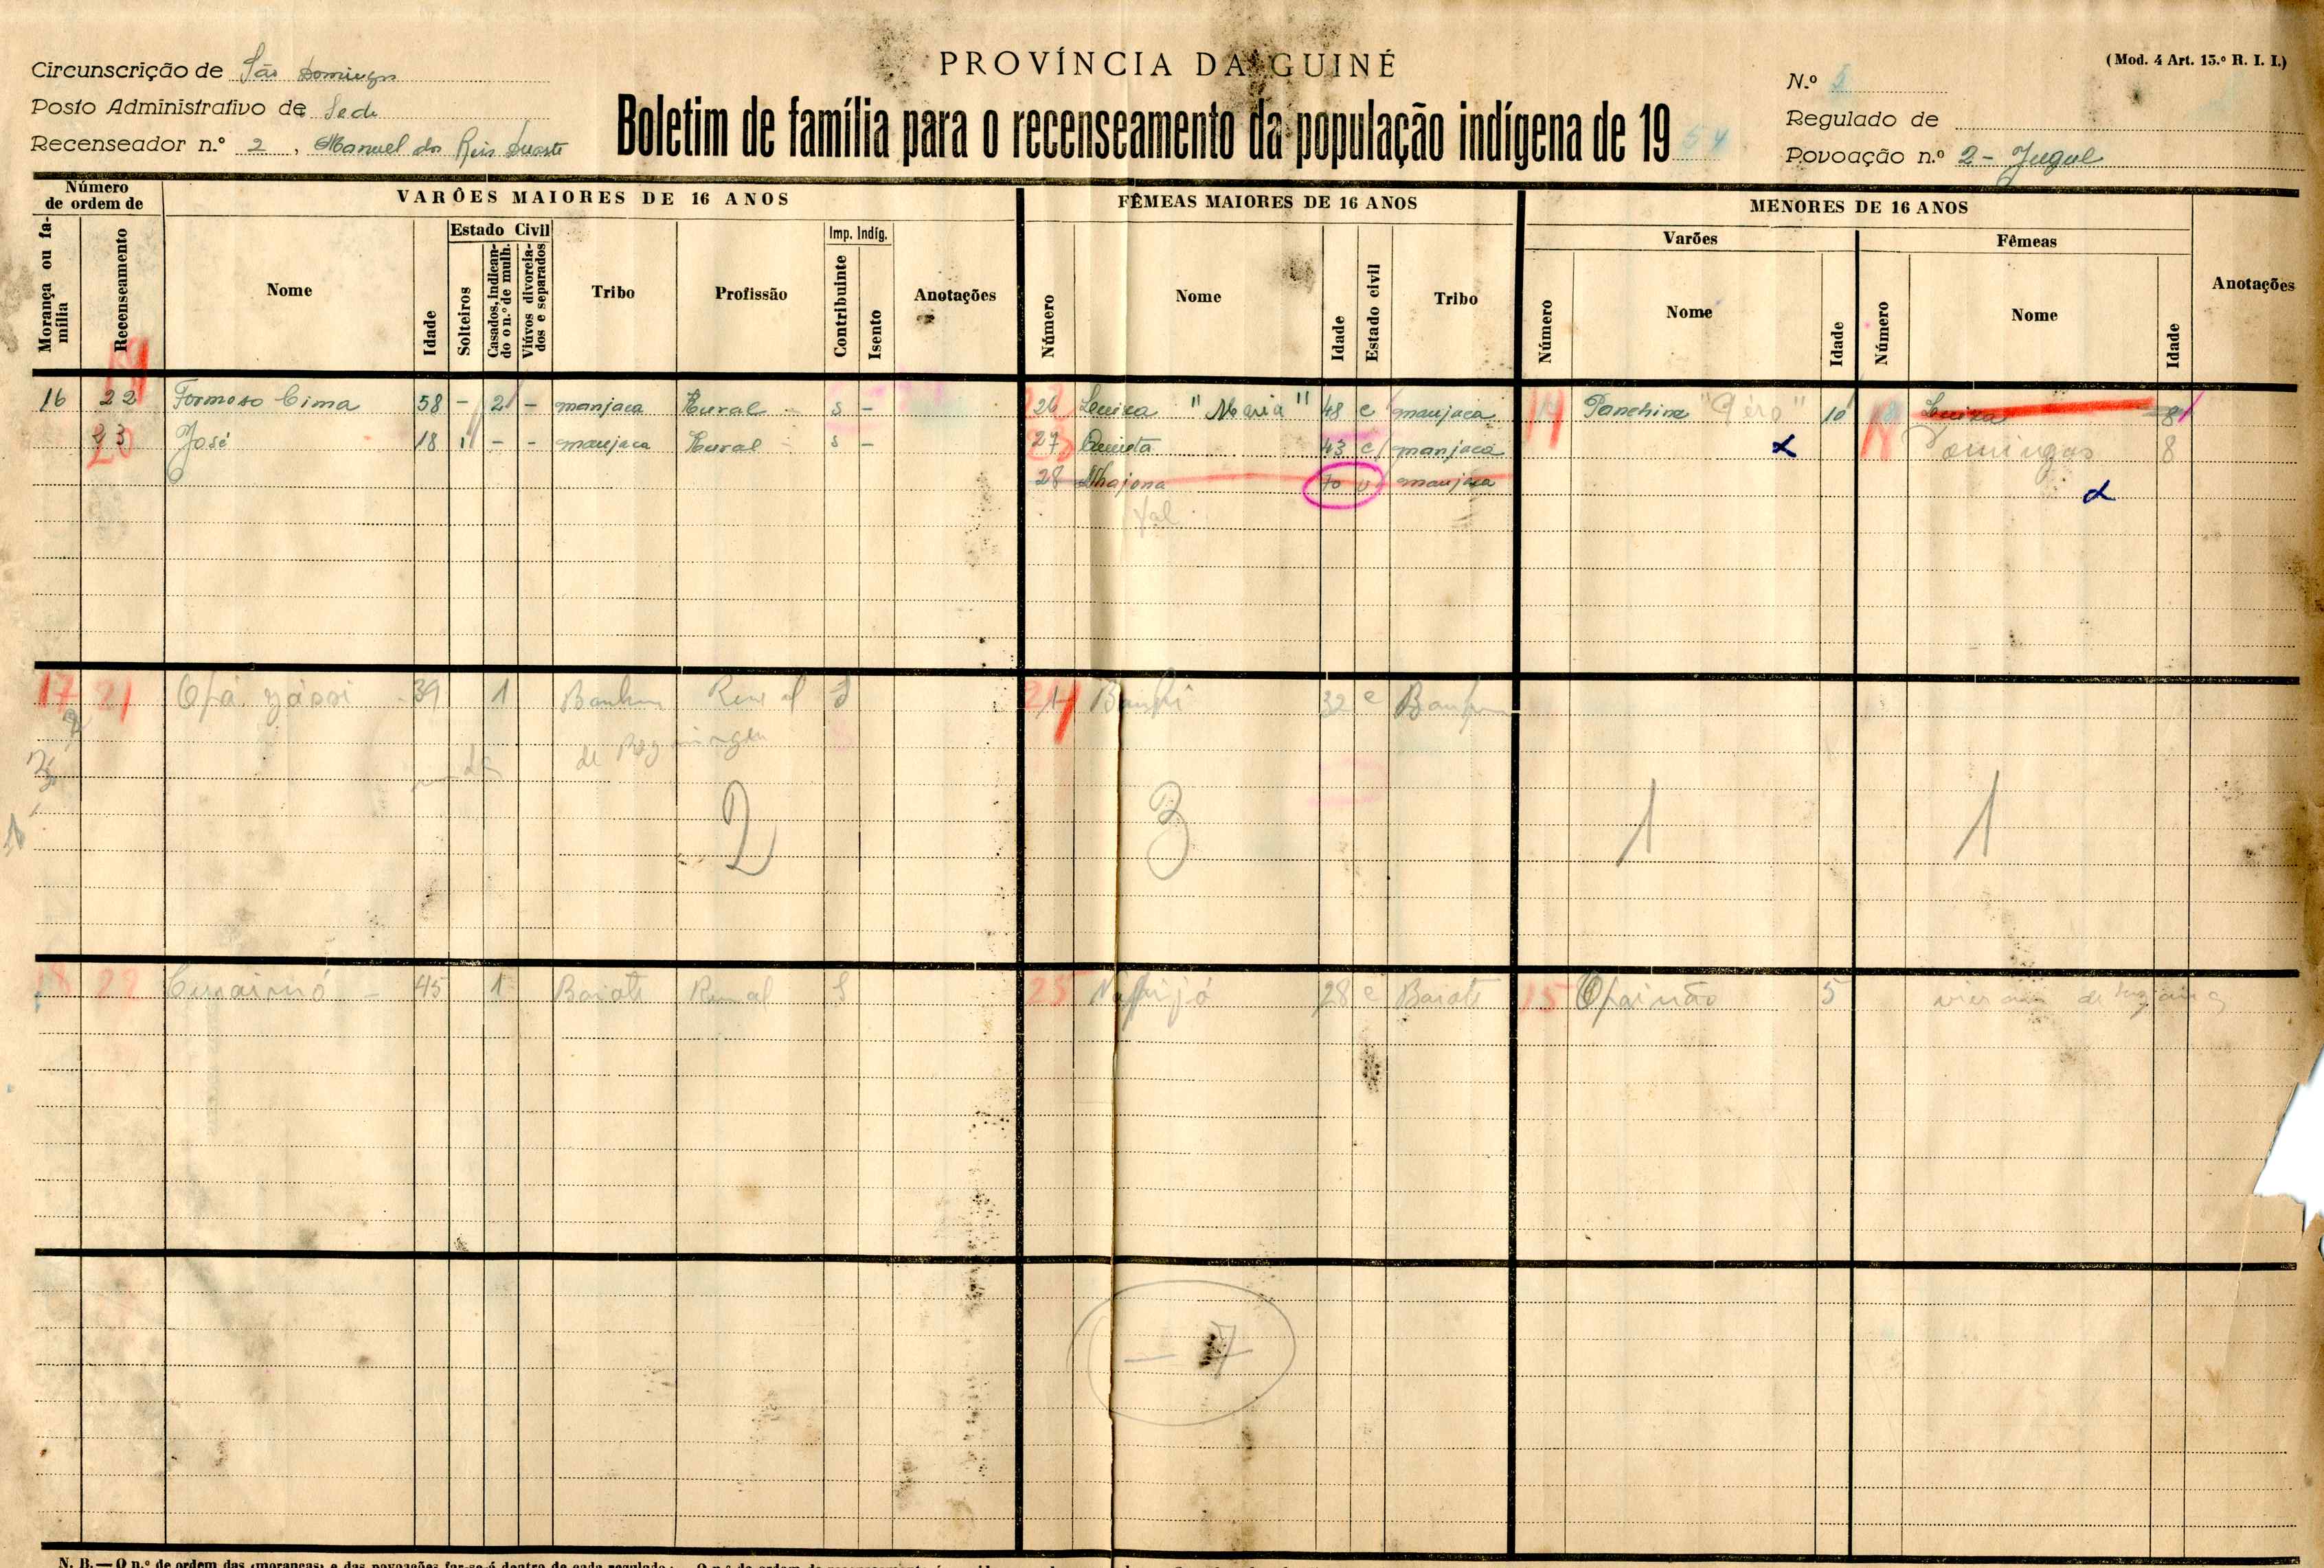 Circunscrição de São Domingos
Posto Administrativo de Sede
Recenseador n.º 2, Manuel dos Reis Duarte
PROVÍNCIA DA GUINÉ
Boletim de família para o recenseamento da população indígena de 1954
(Mod. 4 Art. 15.º R. I. I.)
N.º 5
Regulado de
Povoação n.º 2 - Jugul
Número de ordem de
Morança ou família
Recenseamento
VARÕES MAIORES DE 16 ANOS
Nome
Idade
Estado Civil
Solteiros
Casados, indicando o n.º de mulh.
Viúvos divorciados e separados
Tribo
Profissão
Imp. Indíg.
Contribuinte
Isento
Anotações
FÊMEAS MAIORES DE 16 ANOS
Número
Nome
Idade
Estado civil
Tribo
MENORES DE 16 ANOS
Varões
Número
Nome
Idade
Fêmeas
Número
Nome
Idade
Anotações
16 22 Formoso Cima 58 - 2 - manjaca Rural s - 26 Luiza "Maria" 48 c manjaca 14 Panchina 10 Luiza 8
23 20 José 18 1 - - manjaca Rural s - 27 Quinta 43 c manjaca Domingas 8
28 Nhajona 70 v manjaca
17 21 39 1 Rural S 24 32 c
2 3 1 1
18 22 45 1 Baiote Rural S 25 28 c Baiote 15 5 vieram de
- 7
N. B. — O n.º de ordem das «moranças» e das povoações far-se-á dentro de cada regulado;